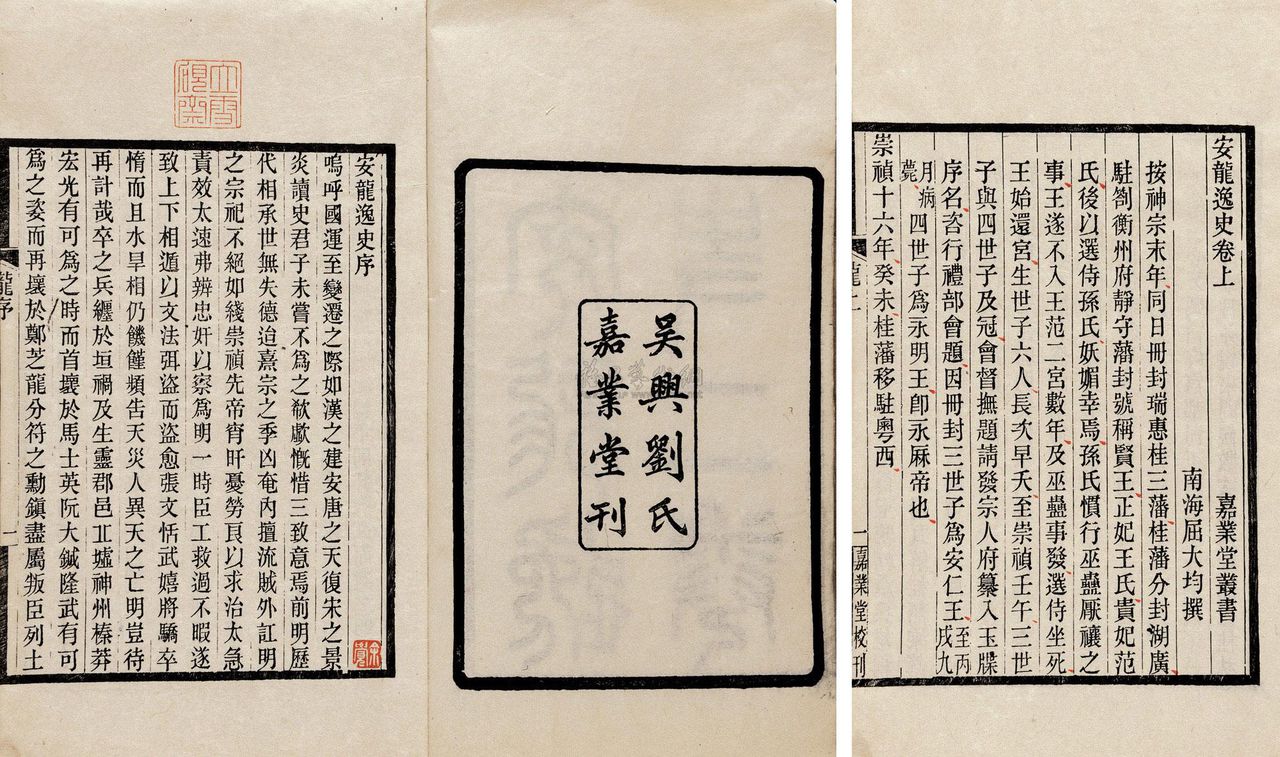 安龍逸史序
嗚呼國運至變遷之際如漢之建安唐之天復宋之景
炎讀史君子未嘗不爲之欷歔慨惜三致意焉前明歷
代相承世無失德迨熹宗之季凶奄內擅流賊外訌明
之宗祀不絕如綫崇禎先帝宵旰憂勞良以求治太急
責效太速弗辨忠奸以察爲明一時臣工救過不暇遂
致上下相遁以文法弭盜而盜愈張文恬武嬉將驕卒
惰而且水旱相仍饑饉頻告天災人異天之亡明豈待
再計哉卒之兵纏於垣禍及生靈郡邑丘墟神州榛莽
宏光有可爲之時而首壞於馬士英阮大鋮隆武有可
爲之姿而再壞於鄭芝龍分符之勳鎮盡屬叛臣列土
龍序 一
吴興劉氏
嘉業堂刊
安龍逸史卷上 嘉業堂叢書
南海屈大均撰
按神宗末年同日冊封瑞惠桂三藩桂藩分封湖廣
駐劄衡州府靜守藩封號稱賢王正妃王氏貴妃范
氏後以選侍孫氏妖媚幸焉孫氏慣行巫蠱厭禳之
事王遂不入王范二宮數年及巫蠱事發選侍坐死
王始還宮生世子六人長次早夭至崇禎壬午三世
子與四世子及冠會督撫題請發宗人府纂入玉牒
序名咨行禮部會題因冊封三世子爲安仁王至丙戌九
月病薨四世子爲永明王卽永厤帝也
崇禎十六年癸未桂藩移駐粵西
龍上 一 嘉業堂校刊